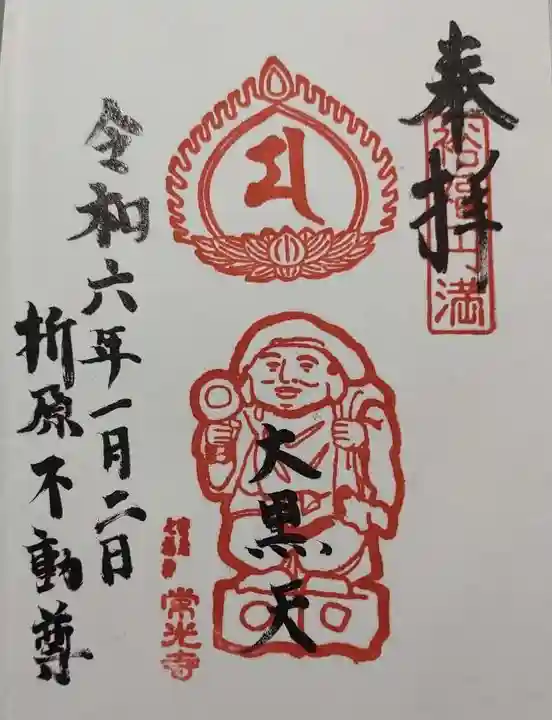 奉拝
福円満
大黒天
常光寺
令和六年一月二日
折原不動尊